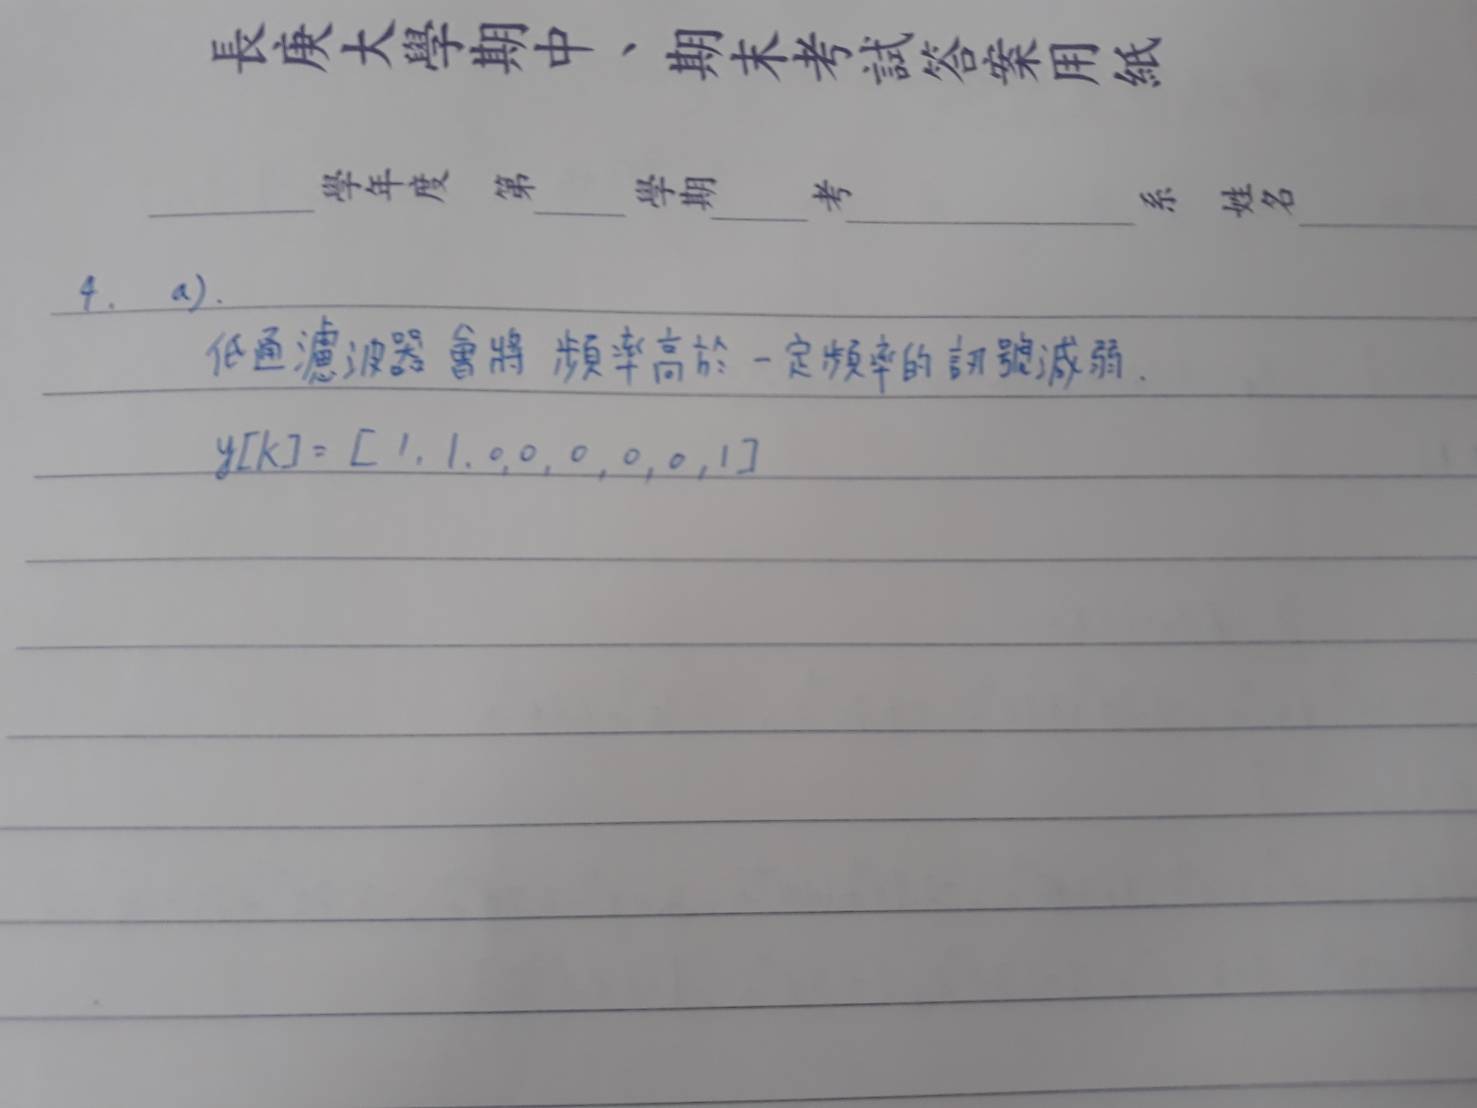 長庚大學期中、期末考試答案用紙
學年度 第 學期 考 系 姓名
4. a).
低通濾波器會將 頻率高於一定頻率的訊號減弱.
y[k]= [ 1. 1. 0,0, 0, 0, 0, 1]